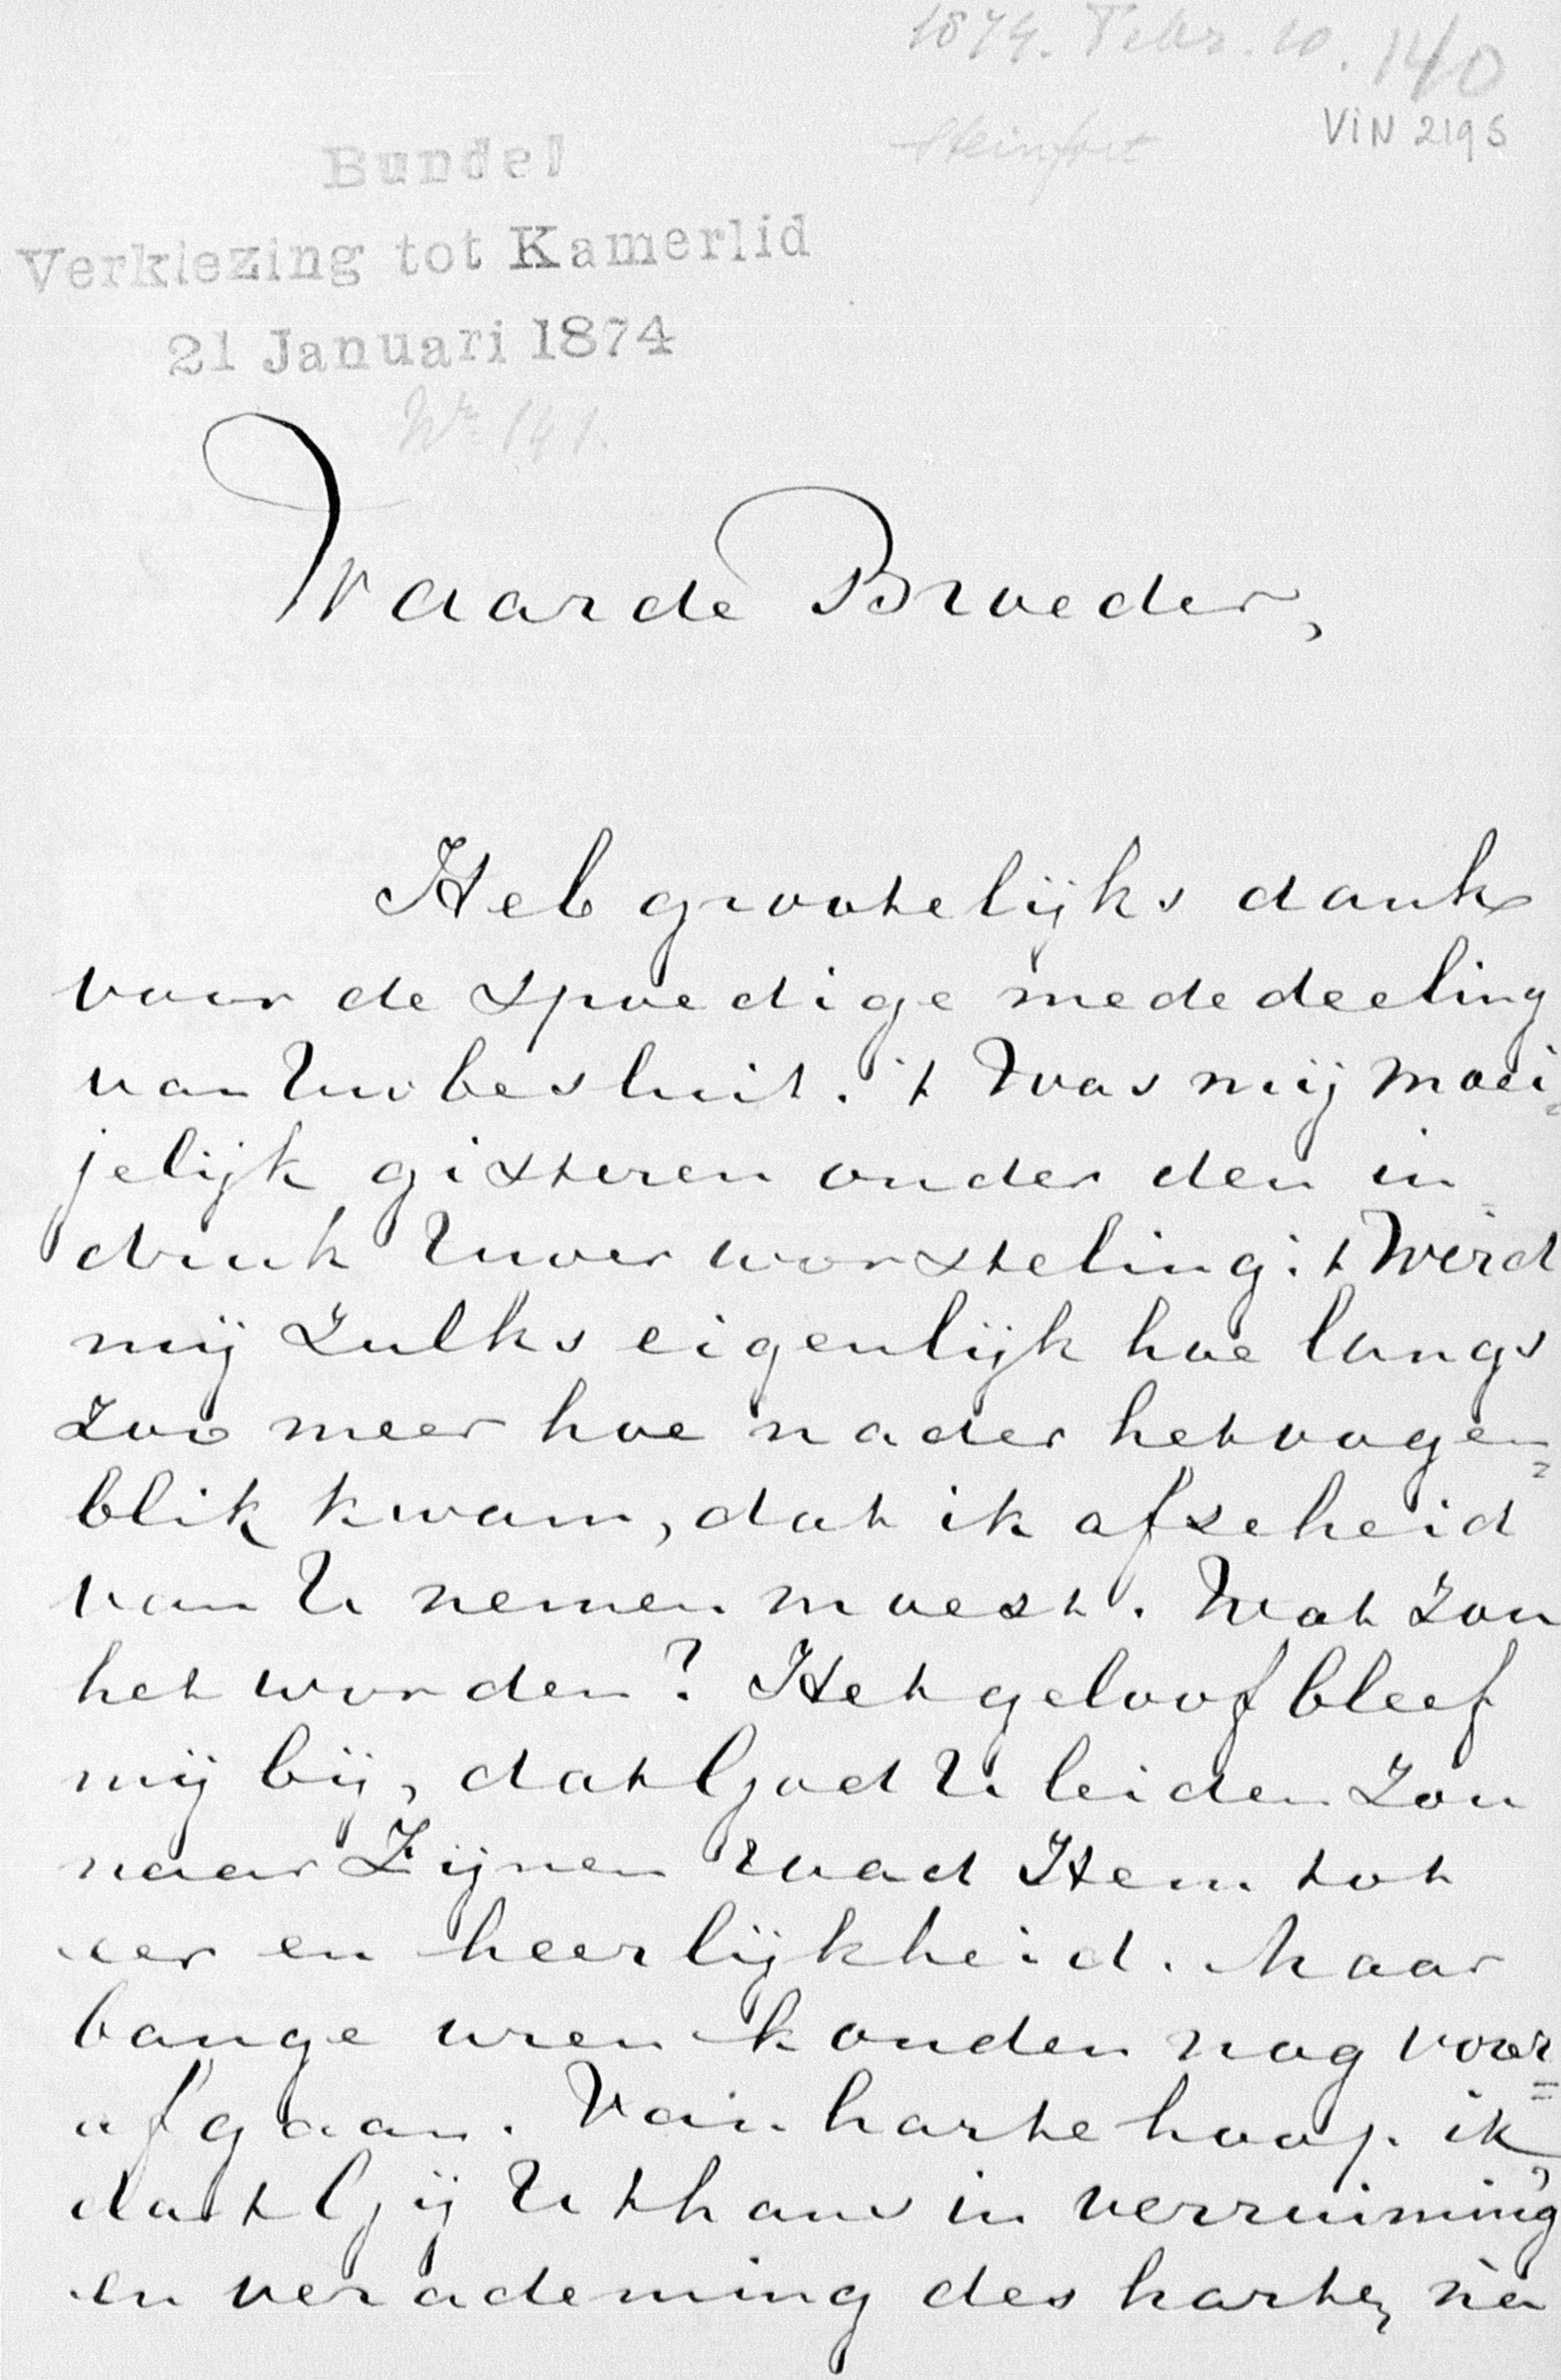 1874. Febr. 10. 140
Steinfort
VIN 2195
Bundel
Verkiezing tot Kamerlid
21 Januari 1874
Nr 141.
Waarde Broeder,
Heb grootelijks dank
voor de spoedige mededeeling
van Uw besluit. 't Was mij moei=
jelijk gisteren onder den in=
druk Uwer worsteling: 't Werd
mij zulks eigenlijk hoe langs
zoo meer hoe nader het oogen=
blik kwam, dat ik afscheid
van U nemen moest. Wat zou
het worden? Het geloof bleef
mij bij, dat God U leiden zou
naar Zijnen raad Hem tot
eer en heerlijkheid. Maar
bange uren konden nog voor=
afgaan. Van harte hoop ik,
dat Gij U thans in verruiming
en verademing des harten, na